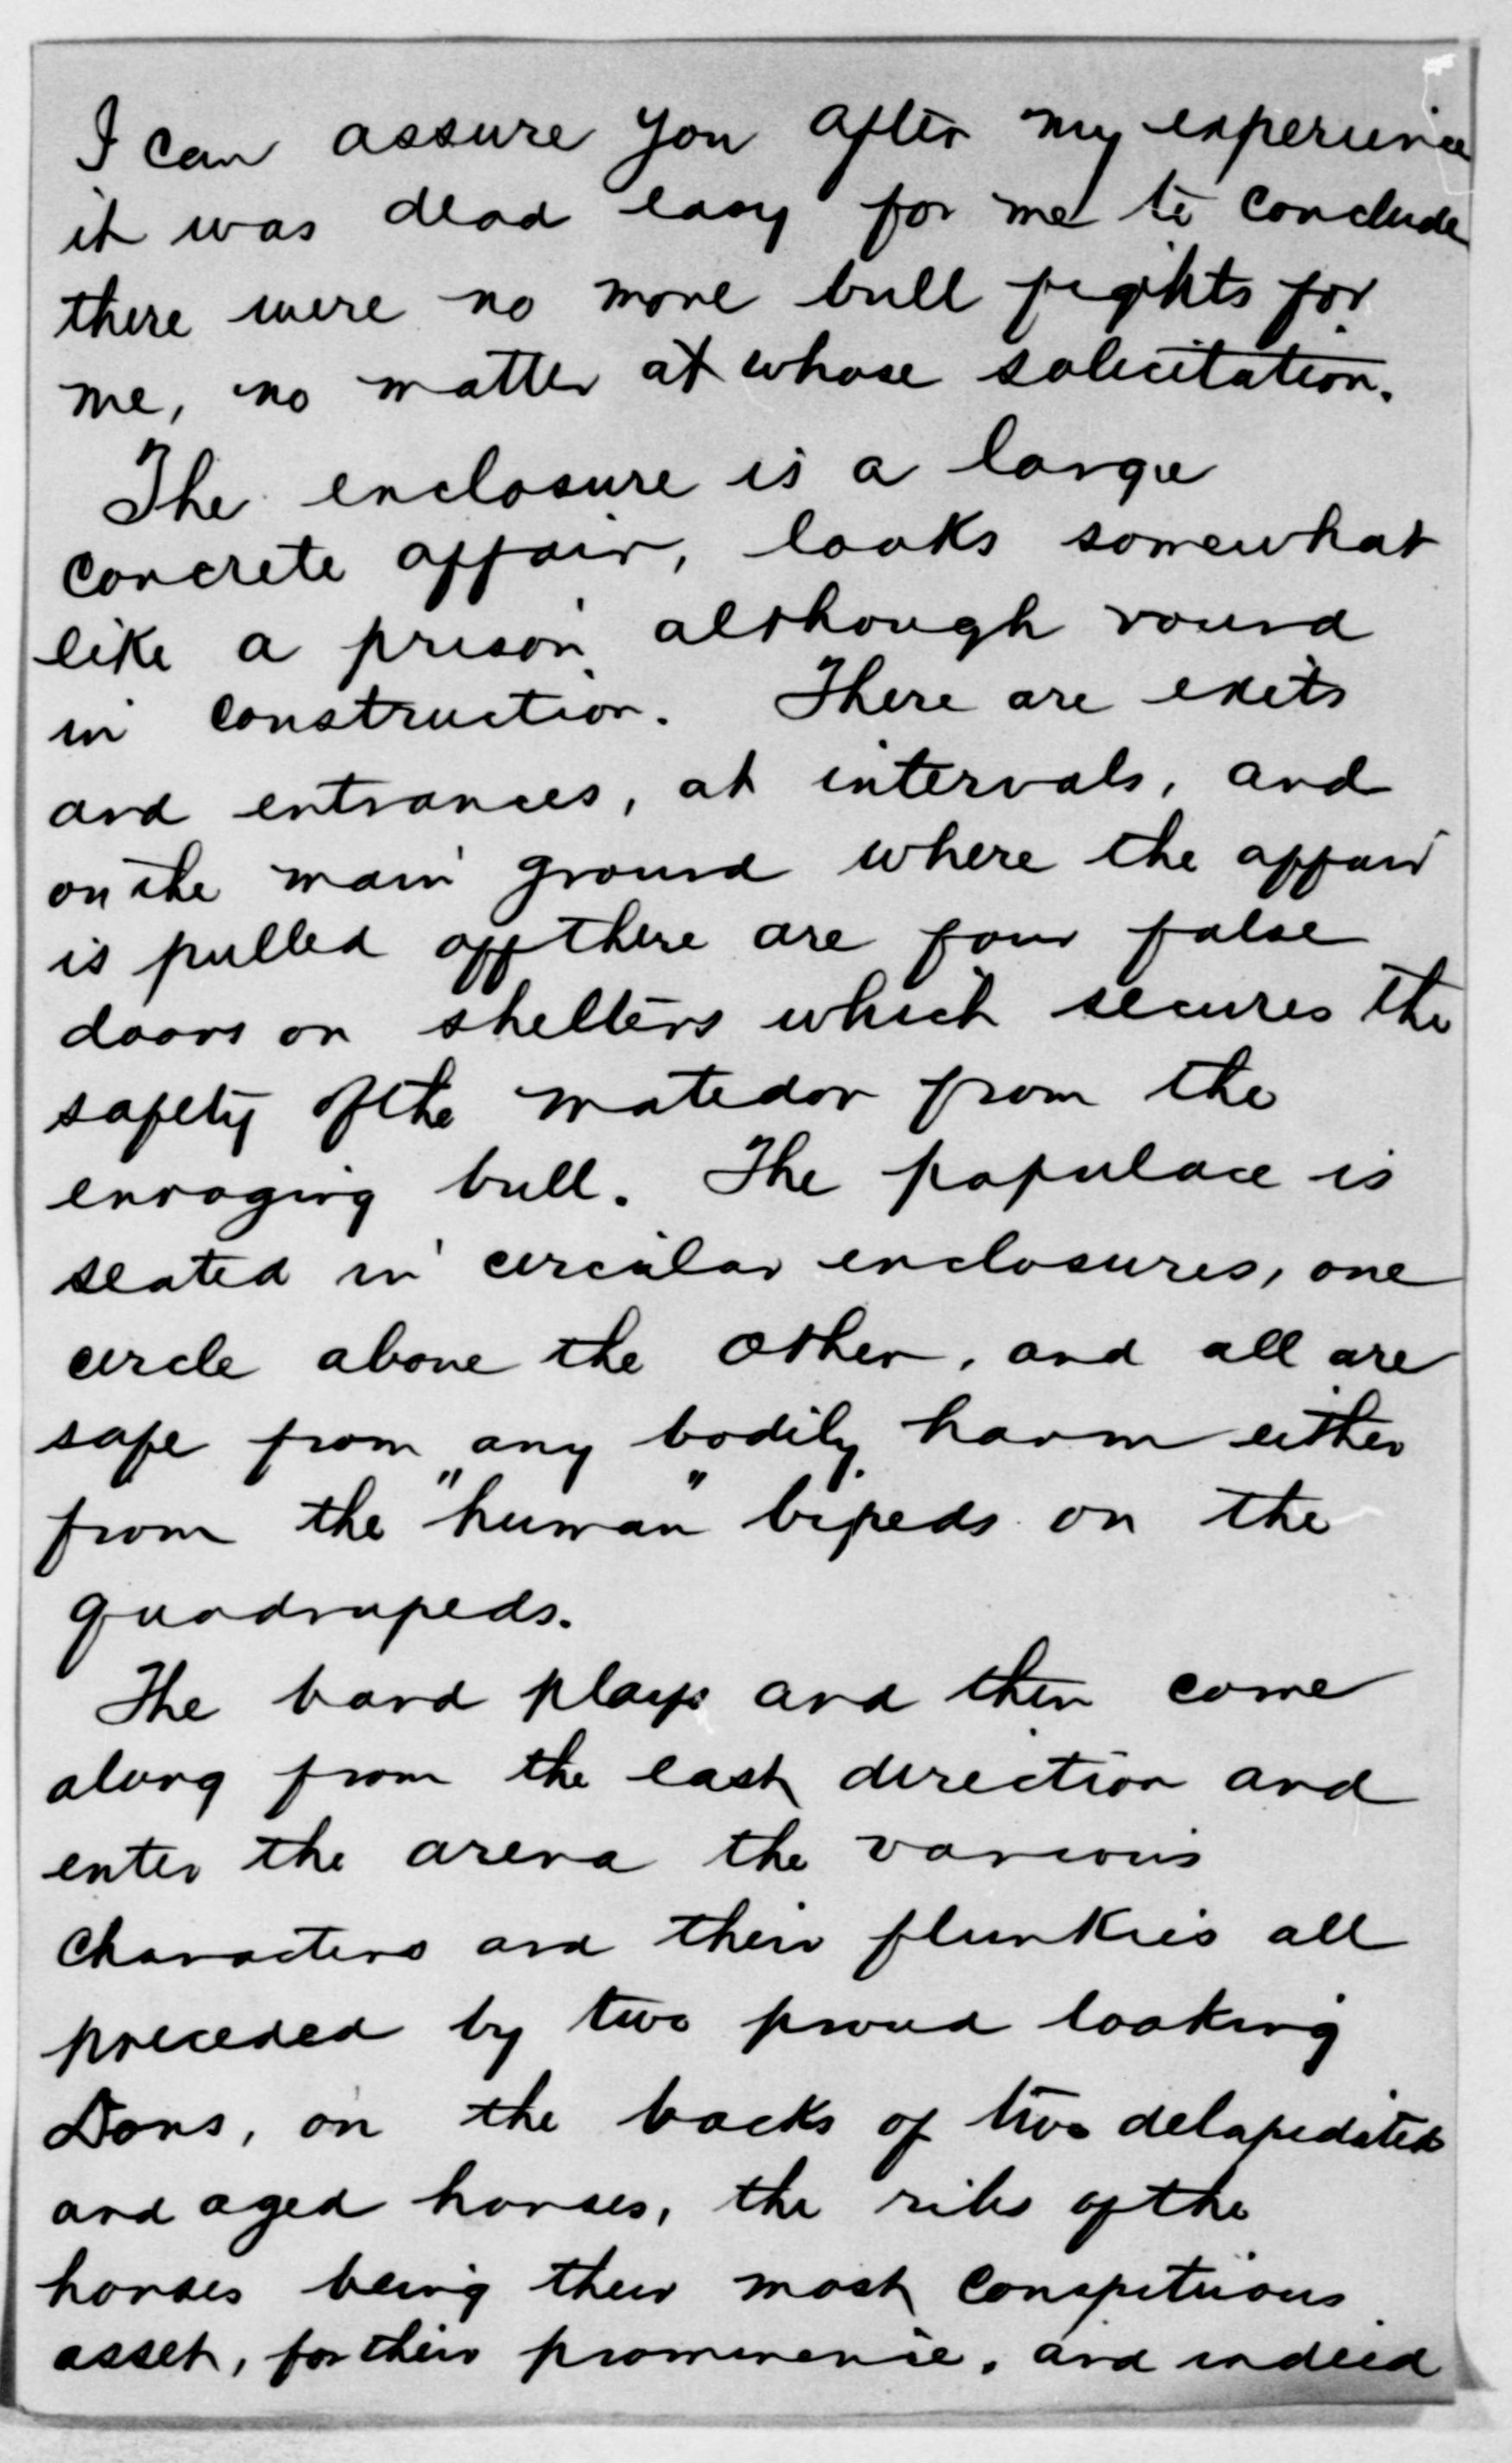 I can assure you after my experience
it was dead easy for me to conclude
there were no more bull fights for
me, no matter at whose solicitation.
The enclosure is a large
concrete affair, looks somewhat
like a prison although round
in construction. There are exits
and entrances, at intervals, and
on the main ground where the affair
is pulled off there are four false
doors or shelters which secures the
safety of the matedor from the
enraging bull. The populace is
seated in circular enclosures, one
circle above the other, and all are
safe from any bodily harm either
from the "human" bipeds or the
quadrupeds.
The band plays and then come
along from the east direction and
enter the arena the various
characters and their flunkies all
preceded by two proud looking
Dons, on the backs of two delapedated
and aged horses, the ribs of the
horses being their most conspituous
asset, for their prominence, and indeed